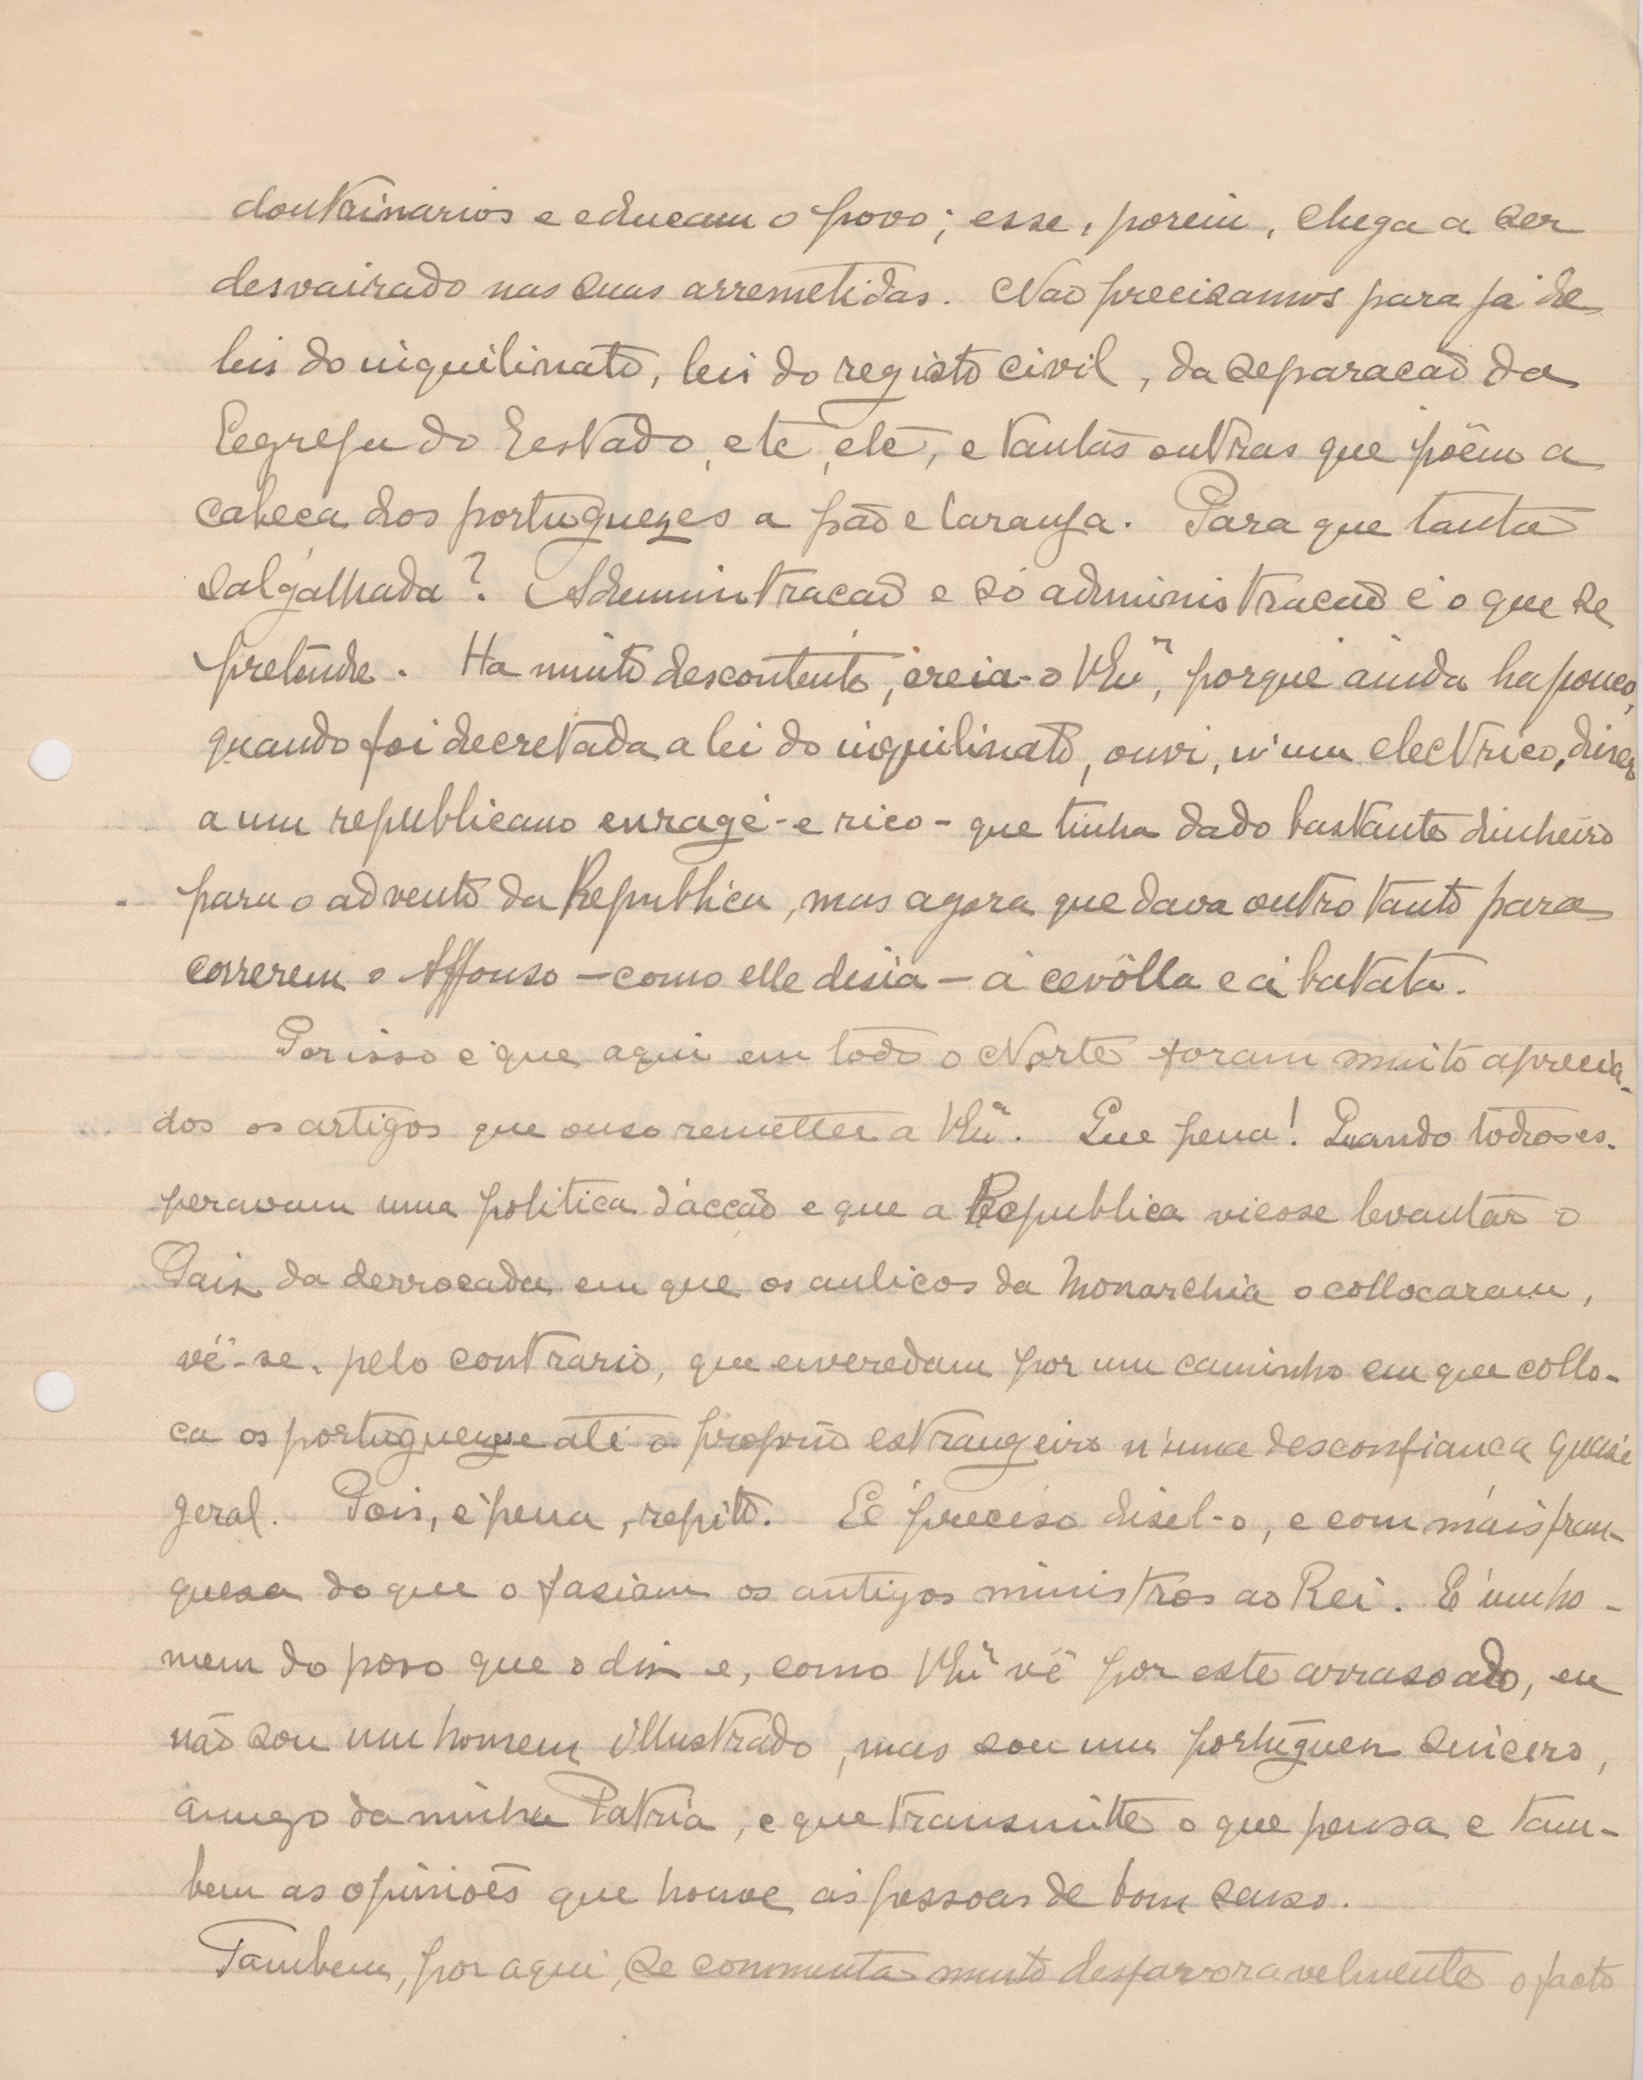 doutrinarios e educam o povo; esse, porem, chega a ser
desvairado nas suas arremetidas. Não precisamos para já de
leis do inquilinato, leis do registo civil, da separacão da
Eegreja do Eestado, etc, etc, e tantas outras que põem a
cabeca dos portuguezes a pão e laranja. Para que tanta
salgalhada? Admnintracão e só administracão é o que se
pretende. Ha muito descontente, creia-o VEx.ª, porque ainda ha pouco,
quando foi decretada a lei do inquilinato, ouvi, n'um electrico, diser
a um republicano enragé - e rico - que tinha dado bastante dinheiro
para o advento da Republica, mas agora que dava outro tanto para
correrem o Affonso - como elle disia - á cevôlla e á batata.
Por isso é que aqui em todo o Norte foram muito aprecia-
dos os artigos que ouso remetter a VEx.ª. Que pena! Quando todos es-
peravam uma politica d'accão e que a Republica viesse levantar o
Paiz da derrocada em que os aulicos da Monarchia o collocaram,
vê-se, pelo contrario, que enveredam por um caminho em que collo-
ca os portuguezes e até o proprio estrangeiro n'uma desconfianca quasi
geral. Pois, é pena, repito. Eé preciso disel-o, e com mais fran-
quesa do que o fasiam os antigos ministros ao Rei. E' um ho-
mem do povo que o diz e, como VEx.ª vê por este arrasoado, eu
não sou um homem illustrado, mas sou um portuguez sincero,
amigo da minha Patria, e que transmitte o que pensa e tam-
bem as opiniões que houve ás pessoas de bom senso.
Tambem, por aqui, se commenta muito desfavoravelmente o facto